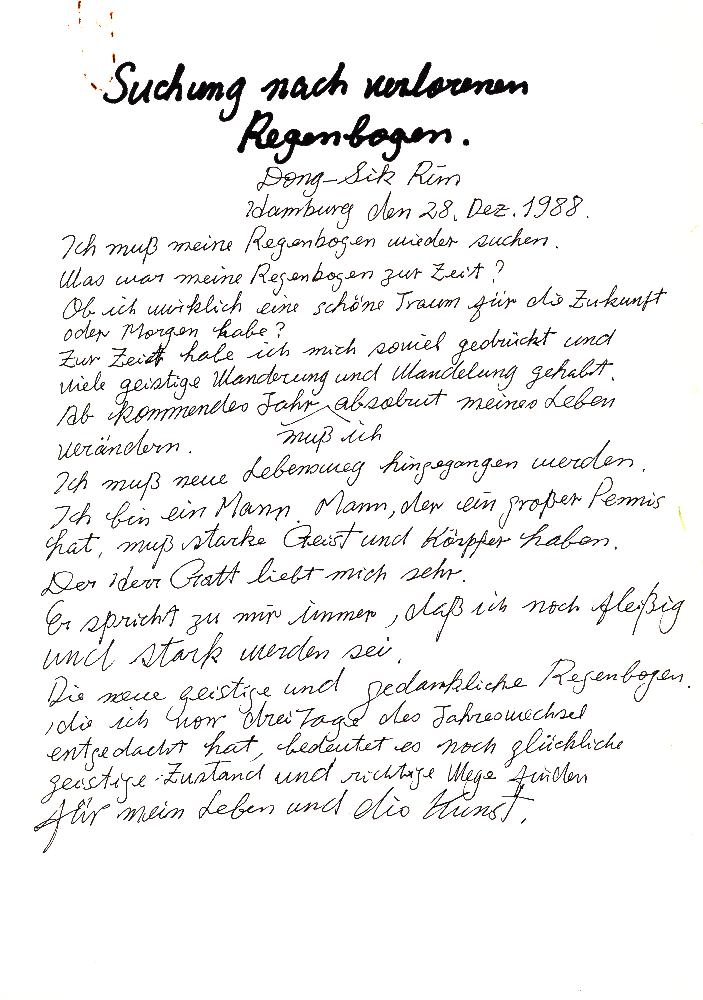 Suchung nach verlorenen
Regenbogen.
Dong-Sik Rim
Hamburg den 28. Dez. 1988.
Ich muß meine Regenbogen wieder suchen.
Was war meine Regenbogen zur Zeit?
Ob ich wirklich eine schöne Traum für die Zukunft
oder Morgen habe?
Zur Zeit habe ich mich soviel gedrückt und
viele geistige Wanderung und Wandelung gehabt.
Ab kommendes Jahr absolrut meines Leben
muß ich
verändern.
Ich muß neue Lebensweg hingegangen werden.
Ich bin ein Mann. Mann, der ein großer Pennis
hat, muß starke Geist und Körpper haben.
Der Herr Gott liebt mich sehr.
Er spricht zu mir immer, daß ich noch fleißig
und stark werden sei.
Die neue geistige und gedankliche Regenbogen.
,die ich vor drei Tage des Jahreswechsel
entgedacht hat, bedeutet es noch glückliche
geistige Zustand und richtige Wege finden
für mein Leben und die Kunst.